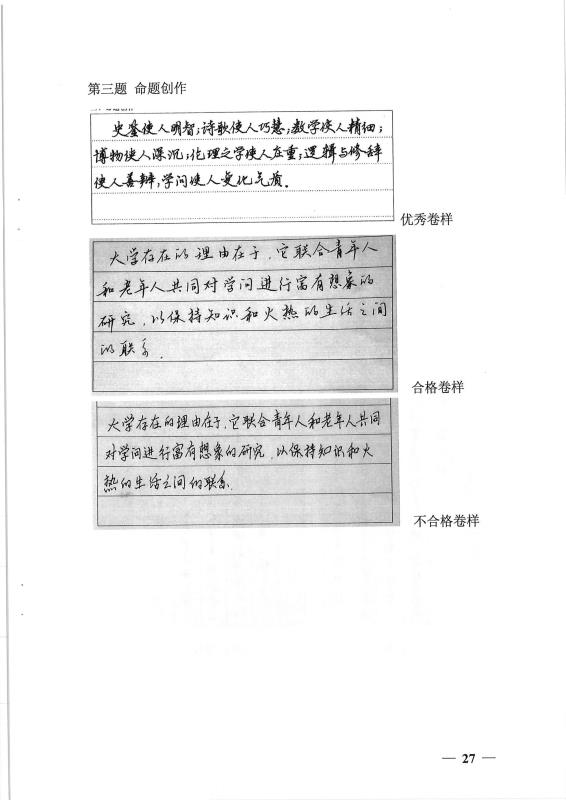 第三题 命题创作
史鉴使人明智;诗歌使人巧慧;数学使人精细;
博物使人深沉;伦理之学使人庄重;逻辑与修辞
使人善辩;学问使人变化气质.
优秀卷样
大学存在的理由在于,它联合青年人
和老年人共同对学问进行富有想象的
研究,以保持知识和火热的生活之间
的联系.
合格卷样
大学存在的理由在于,它联合青年人和老年人共同
对学问进行富有想象的研究,以保持知识和火
热的生活之间的联系.
不合格卷样
— 27 —